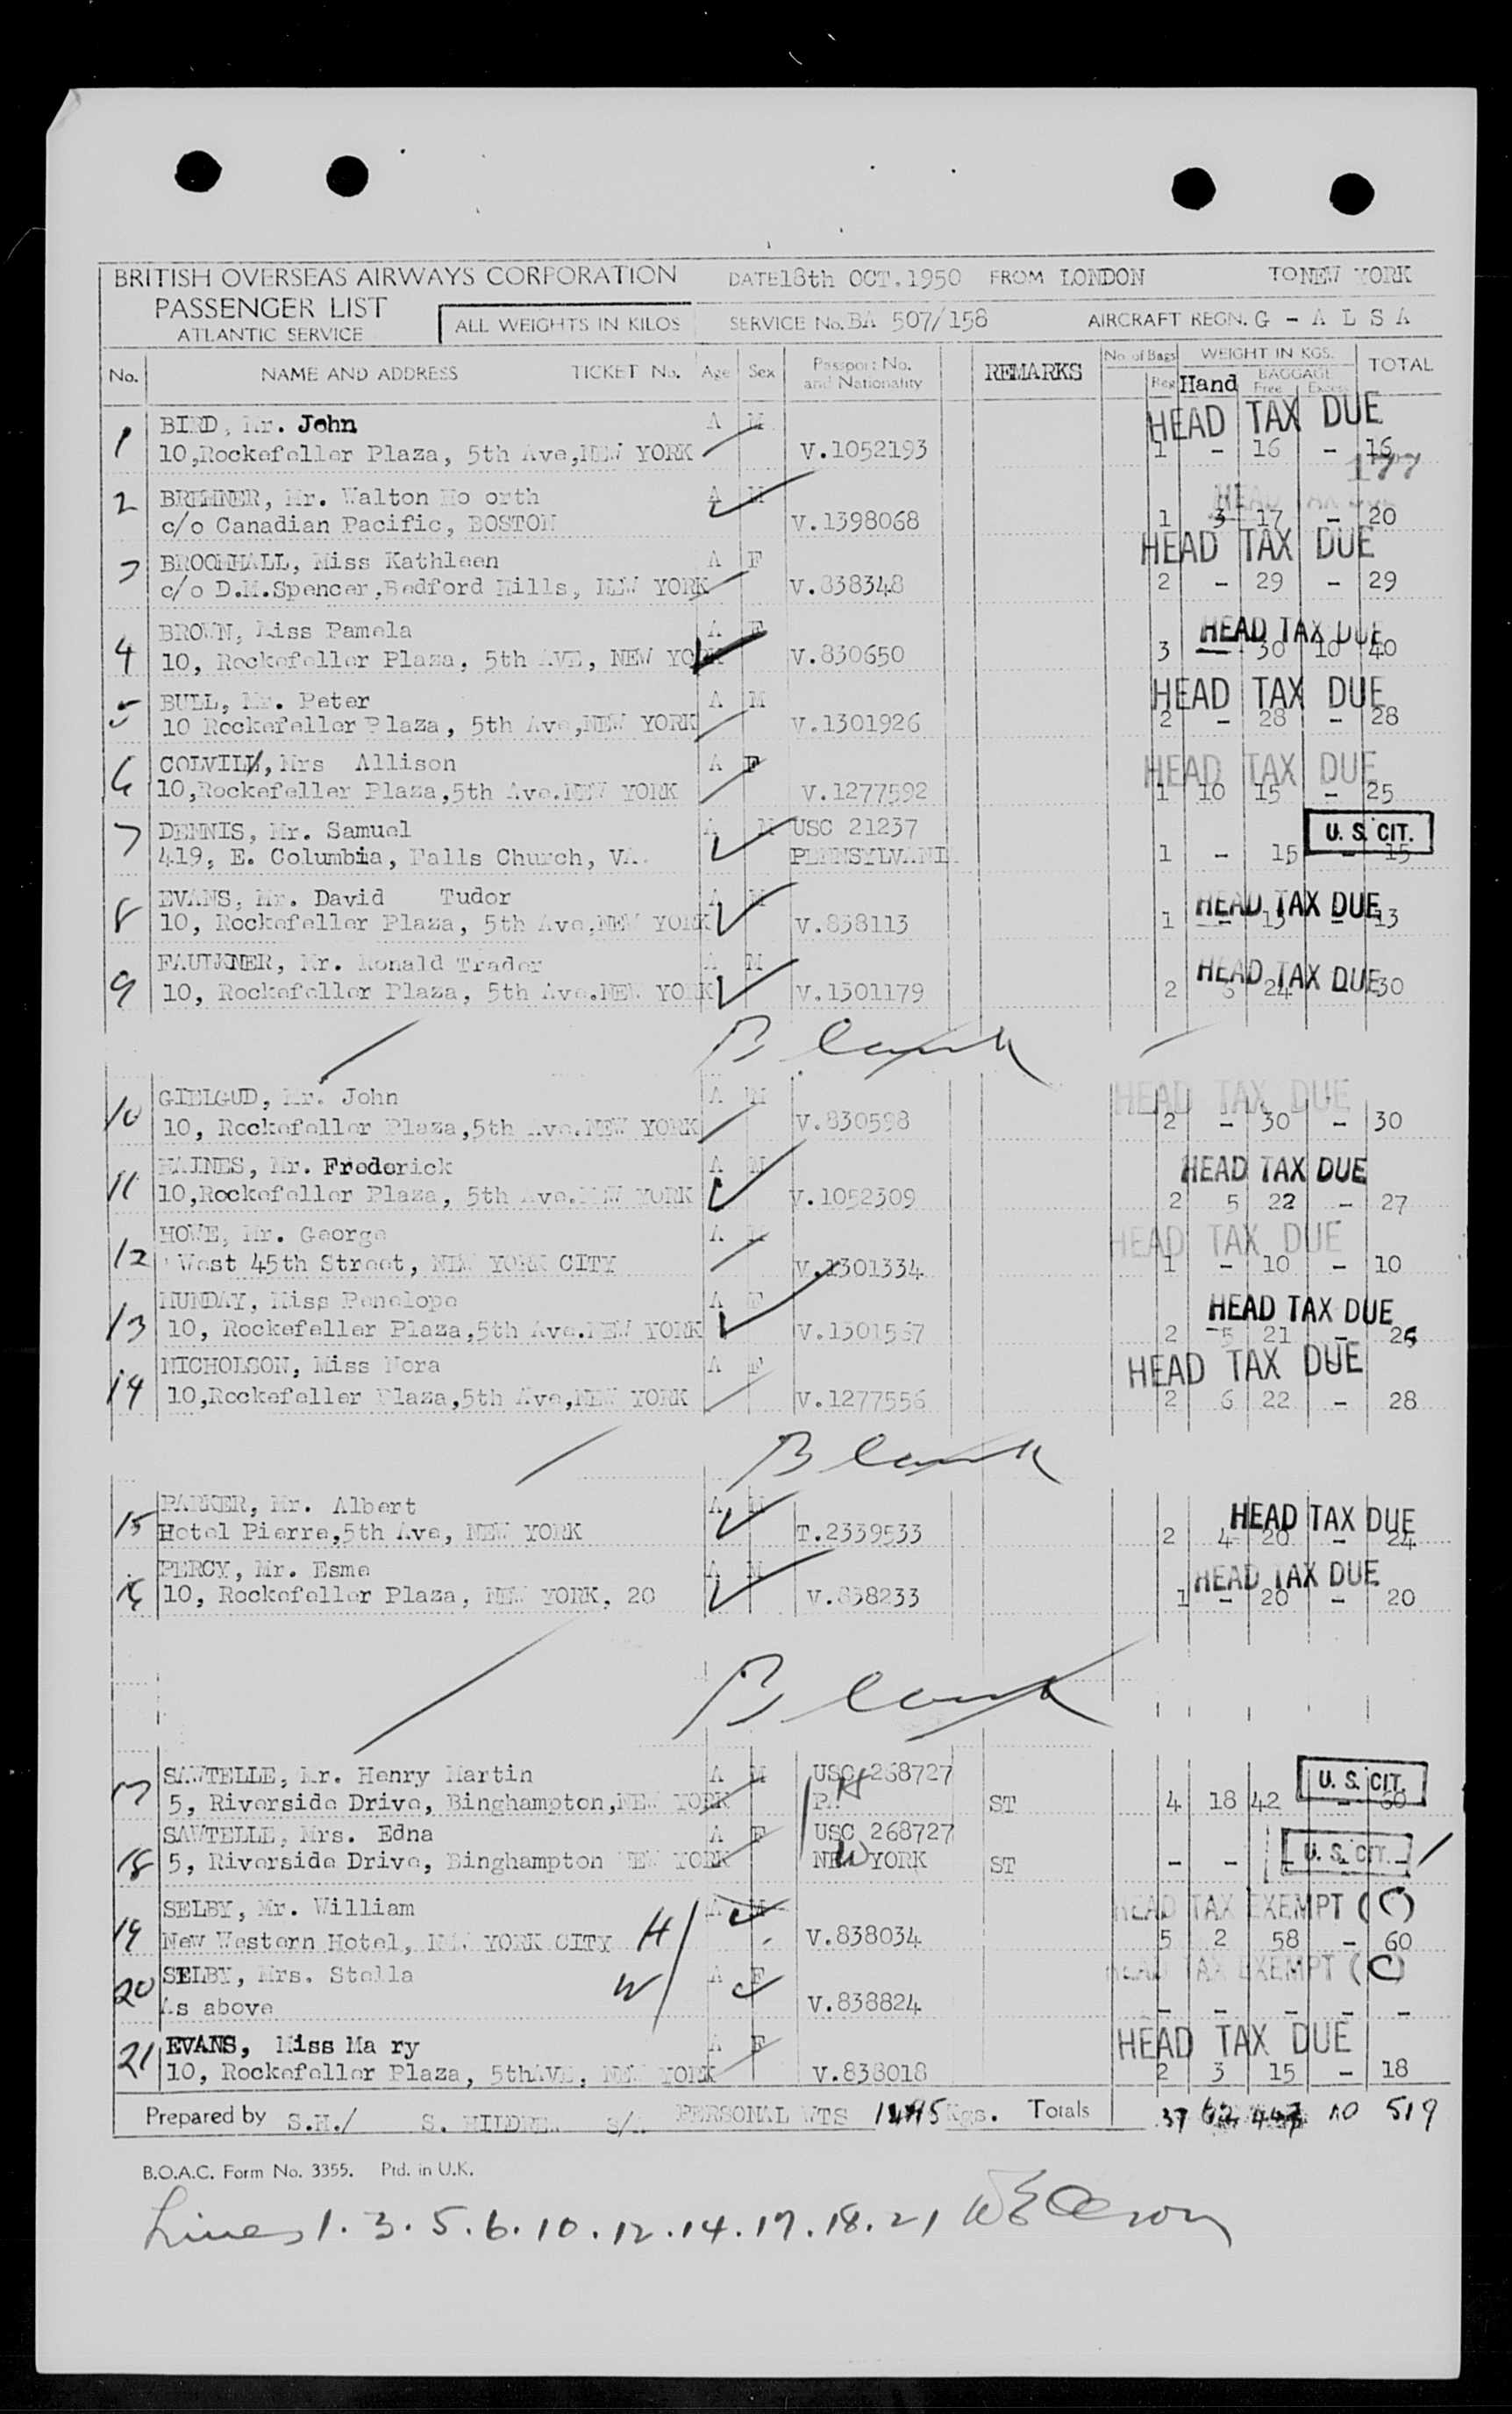 BRITISH OVERSEAS AIRWAYS CORPORATION DATE 18th OCT.1950 FROM LONDON TO NEW YORK
PASSENGER LIST
ATLANTIC SERVICE ALL WEIGHTS IN KILOS SERVICE No. BA 507/158 AIRCRAFT REGN. G - A L S A
No. NAME AND ADDRESS TICKET No. Age Sex Passport No. and Nationality REMARKS No. of Bags Reg Hand WEIGHT IN KGS. BAGGAGE Free Excess TOTAL
1 BIRD, Mr. John A M HEAD TAX DUE
10,Rockefeller Plaza, 5th Ave,NEW YORK V.1052193 1 - 16 - 16
177
2 BREMNER, Mr. Walton Ho orth A M HEAD TAX DUE
c/o Canadian Pacific, BOSTON V.1398068 1 3 17 - 20
3 BROOMHALL, Miss Kathleen A F HEAD TAX DUE
c/o D.M.Spencer,Bedford Hills, NEW YORK V.838348 2 - 29 - 29
4 BROWN, Miss Pamela A F HEAD TAX DUE
10, Rockefeller Plaza, 5th AVE, NEW YORK V.830650 3 - 30 10 40
5 BULL, Mr. Peter A M HEAD TAX DUE
10 Rockefeller Plaza, 5th Ave,NEW YORK V.1301926 2 - 28 - 28
6 COLVILL, Mrs Allison A F HEAD TAX DUE
10,Rockefeller Plaza,5th Ave.NEW YORK V.1277592 1 10 15 - 25
7 DENNIS, Mr. Samuel A M USC 21237 U.S. CIT.
419, E. Columbia, Falls Church, VA. PENNSYLVANI 1 - 15 - 15
8 EVANS, Mr. David Tudor A M HEAD TAX DUE
10, Rockefeller Plaza, 5th Ave.NEW YORK V.838113 1 - 13 - 13
9 FAULKNER, Mr. Ronald Trader A M HEAD TAX DUE
10, Rockefeller Plaza, 5th Ave.NEW YORK V.1301179 2 6 24 30
Blank
10 GIELGUD, Mr. John A M HEAD TAX DUE
10, Rockefeller Plaza,5th Ave.NEW YORK V.830598 2 - 30 - 30
11 HAINES, Mr. Frederick A M HEAD TAX DUE
10,Rockefeller Plaza, 5th Ave.NEW YORK V.1052309 2 5 22 - 27
12 HOWE, Mr. George A M HEAD TAX DUE
West 45th Street, NEW YORK CITY V.1301334 1 - 10 - 10
13 MUNDAY, Miss Penelope A F HEAD TAX DUE
10, Rockefeller Plaza,5th Ave.NEW YORK 2 5 21 - 26
14 NICHOLSON, Miss Nora A F HEAD TAX DUE
10,Rockefeller Plaza,5th Ave,NEW YORK V.1277556 2 6 22 - 28
Blank
15 PARKER, Mr. Albert A M HEAD TAX DUE
Hotel Pierre,5th Ave, NEW YORK T.2339533 2 4 20 - 24
16 PERCY, Mr. Esme A M HEAD TAX DUE
10, Rockefeller Plaza, NEW YORK, 20 V.838233 1 - 20 - 20
Blank
17 SAWTELLE, Mr. Henry Martin A M USC 268727 H U.S. CIT.
5, Riverside Drive, Binghampton,NEW YORK PA ST 4 18 42 - 60
18 SAWTELLE, Mrs. Edna A F USC 268727 W U.S. CIT.
5, Riverside Drive, Binghampton NEW YORK NEW YORK ST - - - - -
19 SELBY, Mr. William A M HEAD TAX EXEMPT (C)
New Western Hotel, NEW YORK CITY H V.838034 5 2 58 - 60
20 SELBY, Mrs. Stella W A F HEAD TAX EXEMPT (C)
As above V.838824 - - - - -
21 EVANS, Miss Ma ry A F HEAD TAX DUE
10, Rockefeller Plaza, 5thAVE, NEW YORK V.838018 2 3 15 - 18
Prepared by S.H./ S. PERSONAL WTS Kgs. Totals 37 62 447 10 519
B.O.A.C. Form No. 3355. Ptd. in U.K.
Lines 1. 3. 5. 6. 10. 12. 14. 17. 18. 21